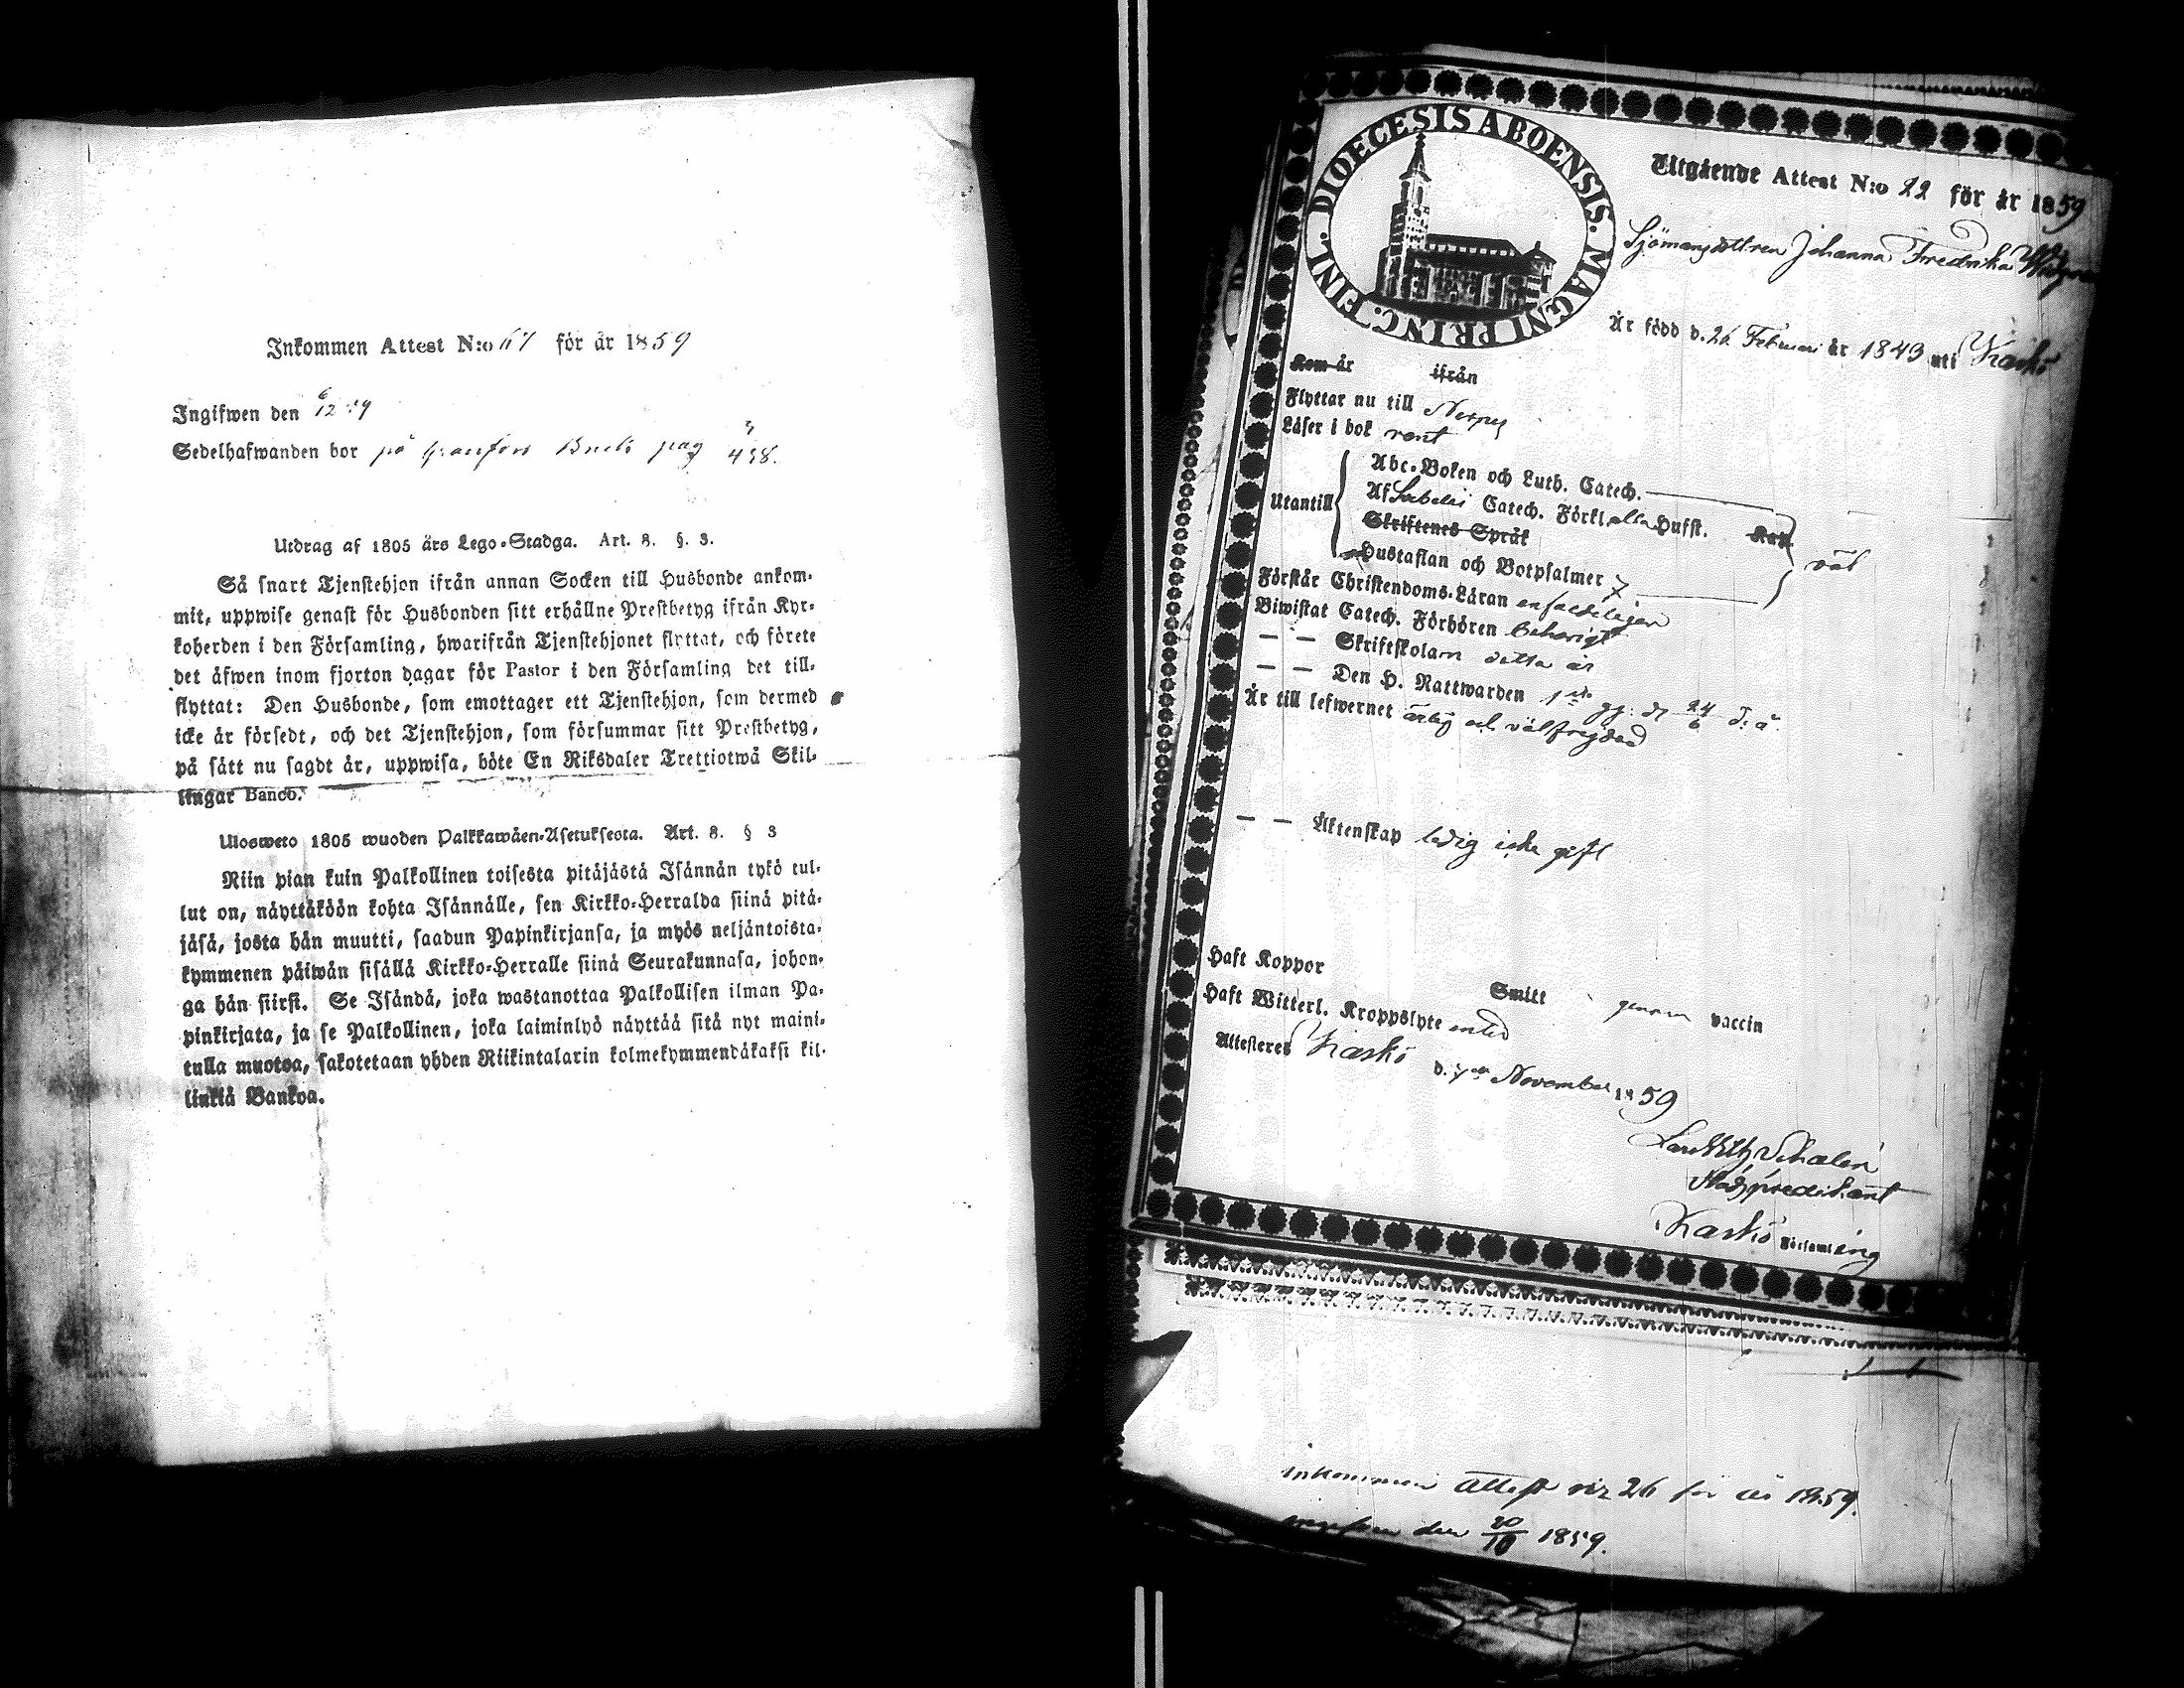 Inkommen Attest N:o 67 för år 1859
Ingifwen den 6/12 59
Sedelhafwanden bor på Bruk pag 438.
Utdrag af 1805 års Lego-Stadga. Art. 8. §. 3.
Så snart Tjenstehjon ifrån annan Socken till Husbonde ankom-
mit, uppwise genast för Husbonden sitt erhållne Prestbetyg ifrån Kyr-
koherden i den Församling, hwarifrån Tjenstehjonet flyttat, och förete
det äfwen inom fjorton dagar för Pastor i den Församling det till-
flyttat: Den Husbonde, som emottager ett Tjenstehjon, som dermed
icke är försedt, och det Tjenstehjon, som försummar sitt Prestbetyg,
på sätt nu sagdt är, uppwisa, böte En Riksdaler Trettiotwå Skil-
lingar Banco.
Ulosweto 1805 wuoden Palkkawäen-Asetuksesta. Art. 8. § 3
Niin pian kuin Palkollinen toisesta pitäjästä Isännän tykö tul-
lut on, näyttäköön kohta Isännälle, sen Kirkko-Herralda siinä pitä-
jäsä, josta hän muutti, saadun Papinkirjansa, ja myös neljäntoista-
kymmenen päiwän sisällä Kirkko-Herralle siinä Seurakunnasa, johon-
ga hän siirsi. Se Isändä, joka wastanottaa Palkollisen ilman Pa-
pinkirjata, ja se Palkollinen, joka laiminlyö näyttää sitä nyt maini-
tulla muotoa, sakotetaan yhden Riikintalarin kolmekymmendäkaksi kil-
linkiä Bankoa.
DIOECESIS ABOENSIS. MAGNI PRINC. FINL.
Utgående Attest N:o 22 för år 1859
Sjömansdottren Johanna Fredrika
Är född d. 26 Februari år 1843 uti Kaskö
Kom år ifrån
Flyttar nu till Nerpes
Läser i bok rent
Utantill
Abc-Boken och Luth. Catech.
Af Svebelii Catech. Förkl. alla Hufst.
Skriftenes Språk
Hustaflan och Botpsalmer 7
väl
Förstår Christendoms-Läran enfaldeligen
Biwistat Catech. Förhören behörigt
— — Skriftskolan detta år
— — Den H. Nattwarden 1sta gg: d. 24/6 d: å.
Är till lefwernet ärlig och välfrejdad
— — Äktenskap ledig icke gift
Haft Koppor Smitt genom vaccin
Haft Witterl. Kroppslyte intet
Attesteres Kaskö d. 7de November 1859
Stadspredikant
Kaskö Församling
Inkommen Attest n:r 26 för år 1859.
ingifven den 20/10 1859.